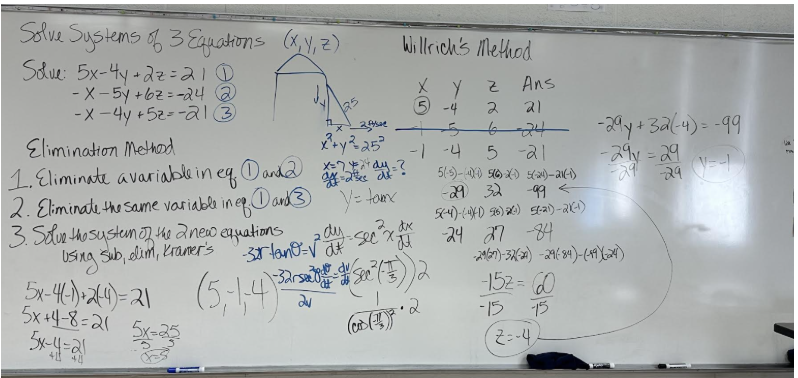 Solve Systems of 3 Equations (x,y,z)
Solve: 5x-4y+2z=21 ①
-x-5y+6z=-24 ②
-x-4y+5z=-21 ③
Elimination Method
1. Eliminate a variable in eq ① and ②
2. Eliminate the same variable in eq ① and ③
3. Solve the system of the 2 new equations
using sub, elim, Kramer's
5x-4(-1)+2(-4)=21
5x+4-8=21
5x-4=21
+4 +4
5x=25
5 5
x=5
(5,-1,-4)
y
25
x
x²+y²=25²
y=tanx
dy/dt=sec²x dx/dt
(sec²(-π/3))2
1
(cos(-π/3))² · 2
Willrich's Method
x y z Ans
5 -4 2 21
-1 -5 6 -24
-1 -4 5 -21
5(-5)-(-4)(-1) 5(6)-2(-1) 5(-24)-21(-1)
-29 32 -99
-24 27 -84
-29(27)-32(-24) -29(-84)-(-99)(-24)
-15z = 60
-15 -15
z=-4
-29y+32(-4)=-99
-29y = 29
-29 -29
y=-1